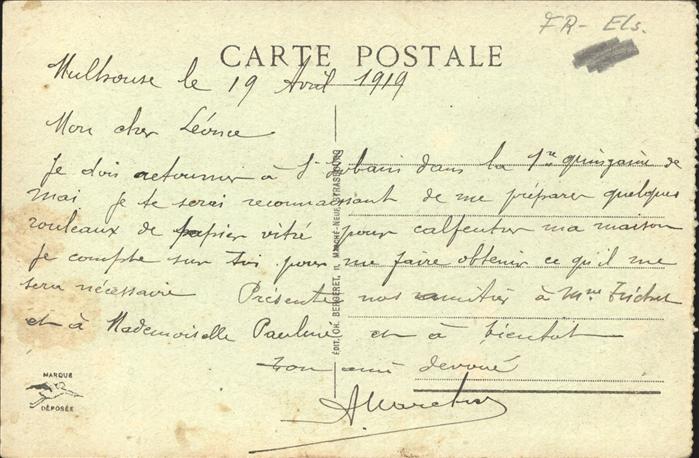 FR- Els.
CARTE POSTALE
Mulhouse le 19 Avril 1919
Mon cher Léonce
Je dois retourner à St Urbain dans la 1re quinzaine de
mai je te serai reconnaissant de me préparer quelques
rouleaux de papier vitré pour calfeutrer ma maison
Je compte sur toi pour me faire obtenir ce qu'il me
sera nécessaire Présente nos amitiés à Mme
et à Mademoiselle Pauline et à bientôt
ton ami devoué
ÉDIT. CH. BERGERET, 11, MARCHÉ-NEUF, STRASBOURG
MARQUE
DÉPOSÉE